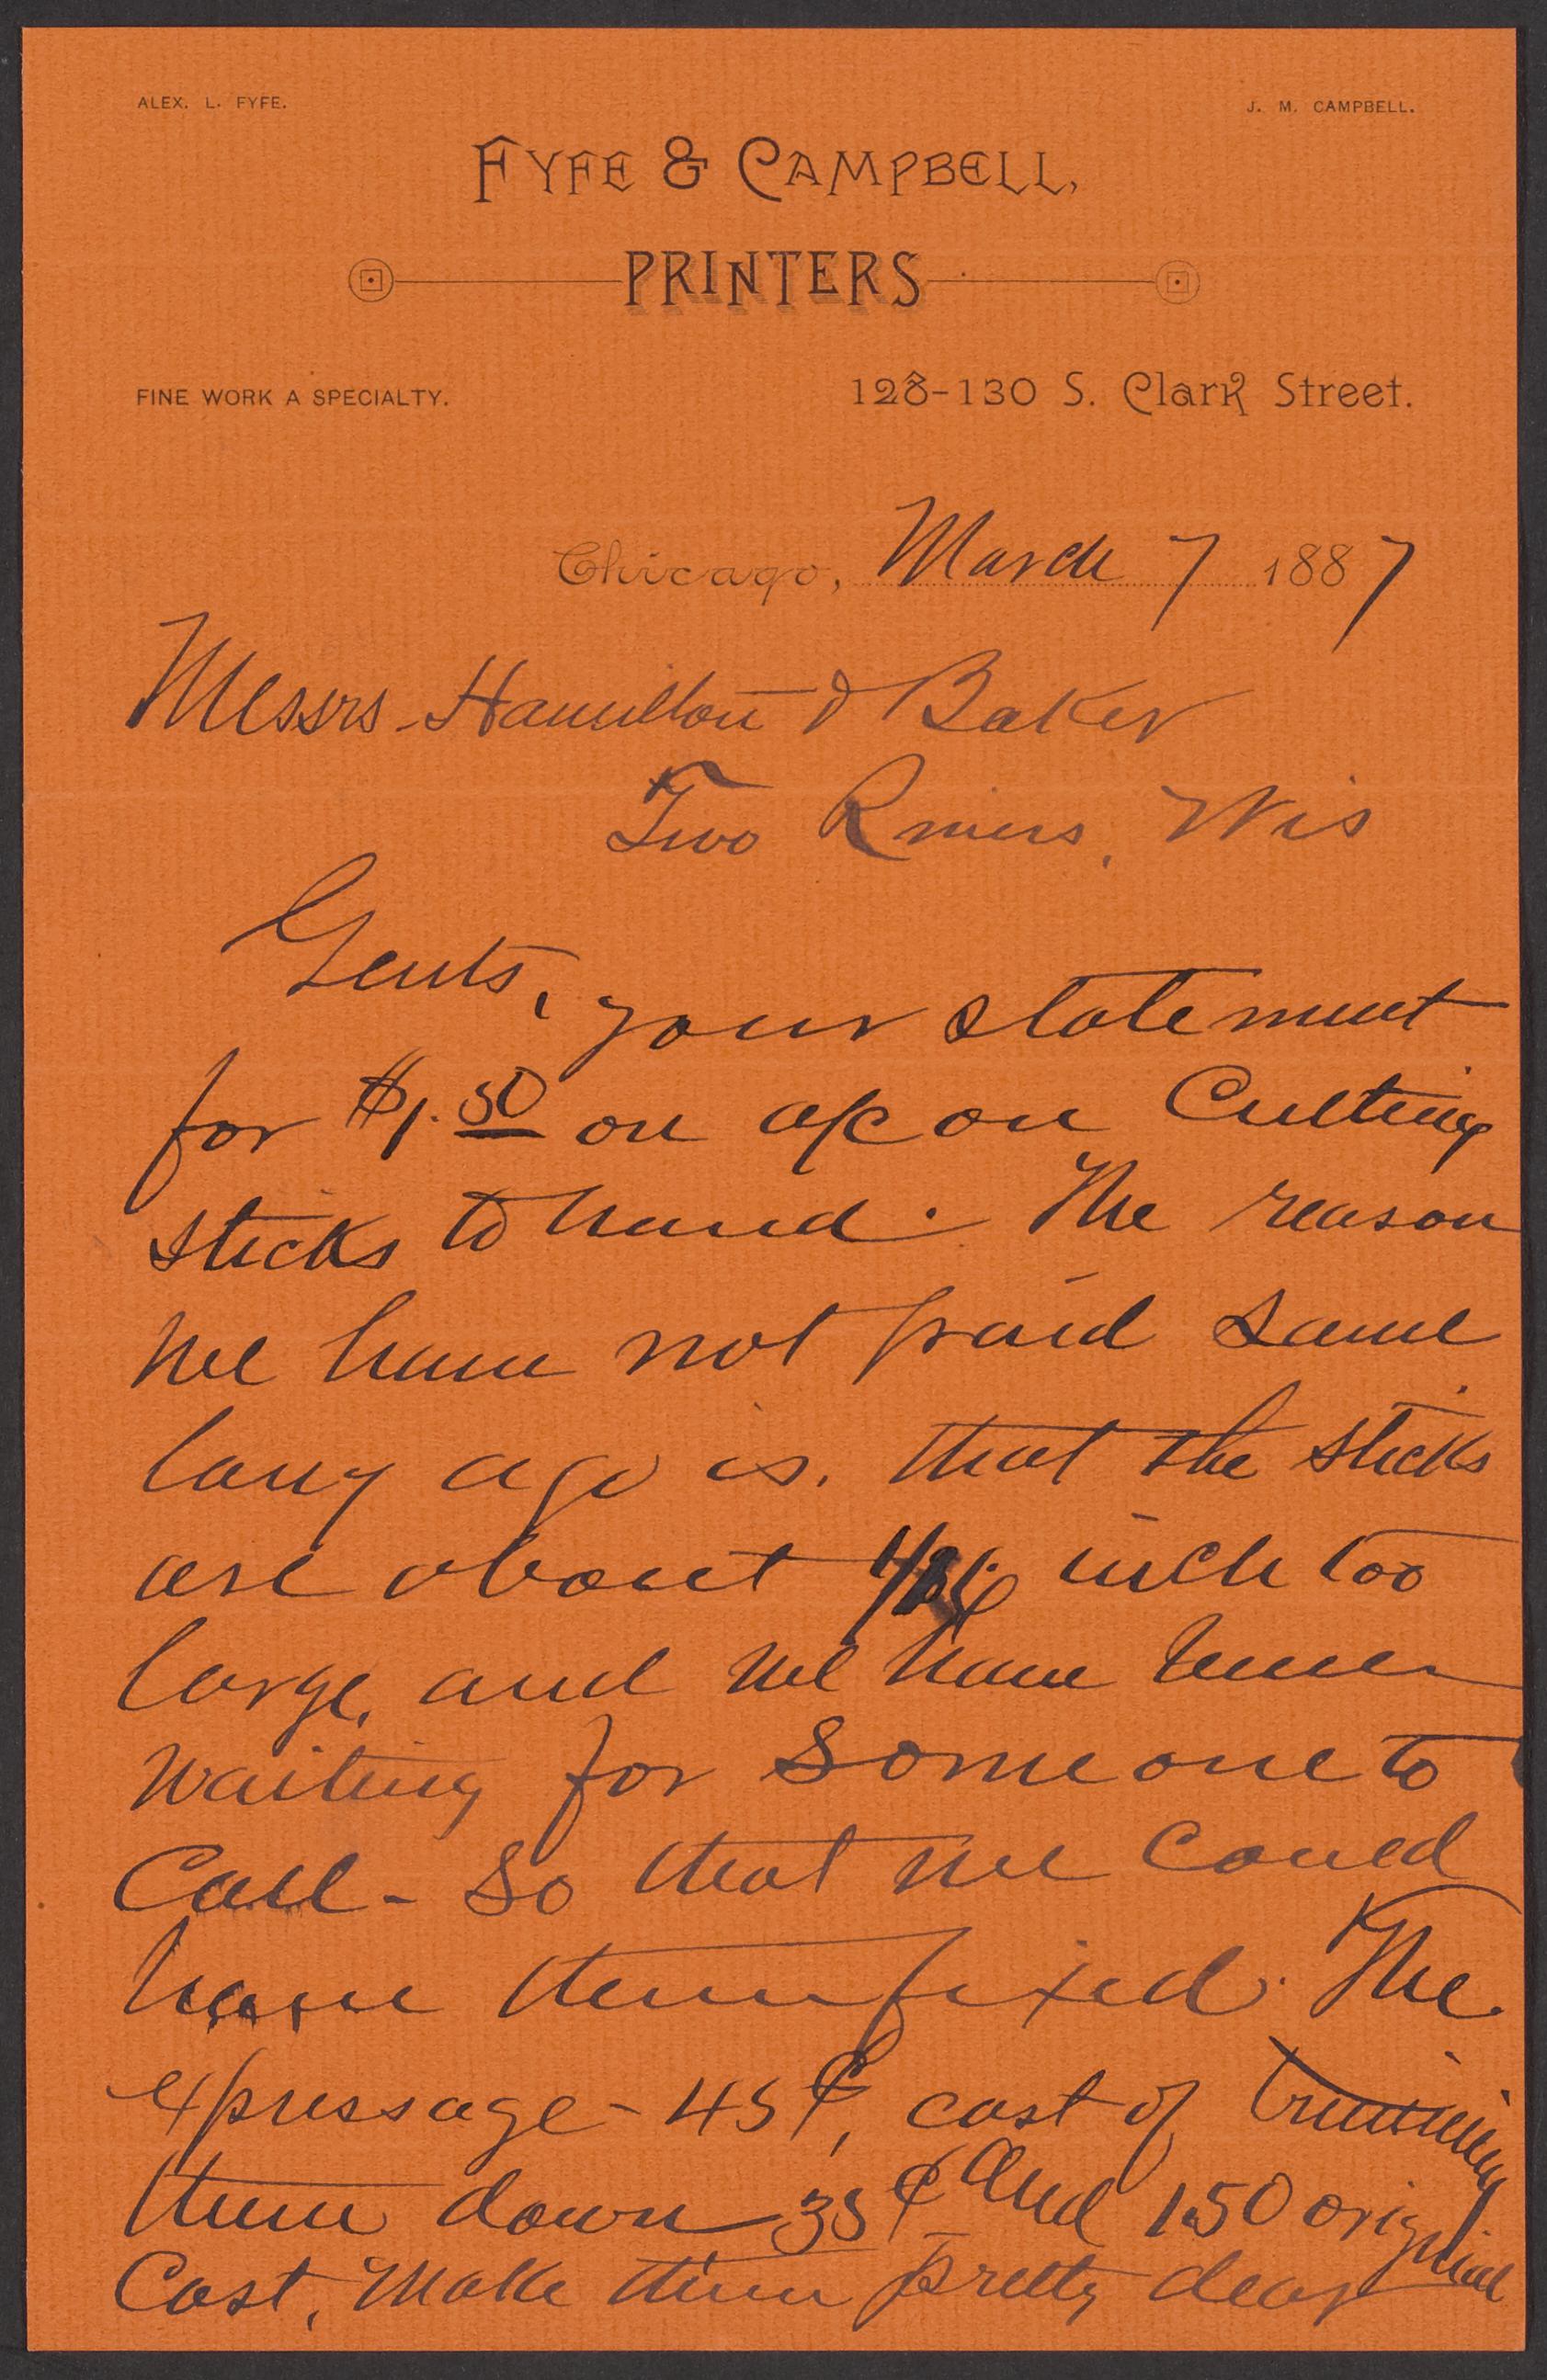 ALEX. L. FYFE.
J. M. CAMPBELL.
FYFE & CAMPBELL,
PRINTERS
FINE WORK A SPECIALTY.
128-130 S. Clark Street.
Chicago, March 7 1887
Messrs Hamilton & Baker
Two Rivers, Wis
Gents, your statement
for $1.50 on a/c on Cutting
sticks to hand. The reason
we have not paid same
long ago is, that the sticks
are about inch too
large, and we have been
waiting for some one to
Call - So that we could
have them fixed. The
expressage - 45¢, cost of trimming
them down 35¢ and 1.50 original
Cost, make them pretty dear